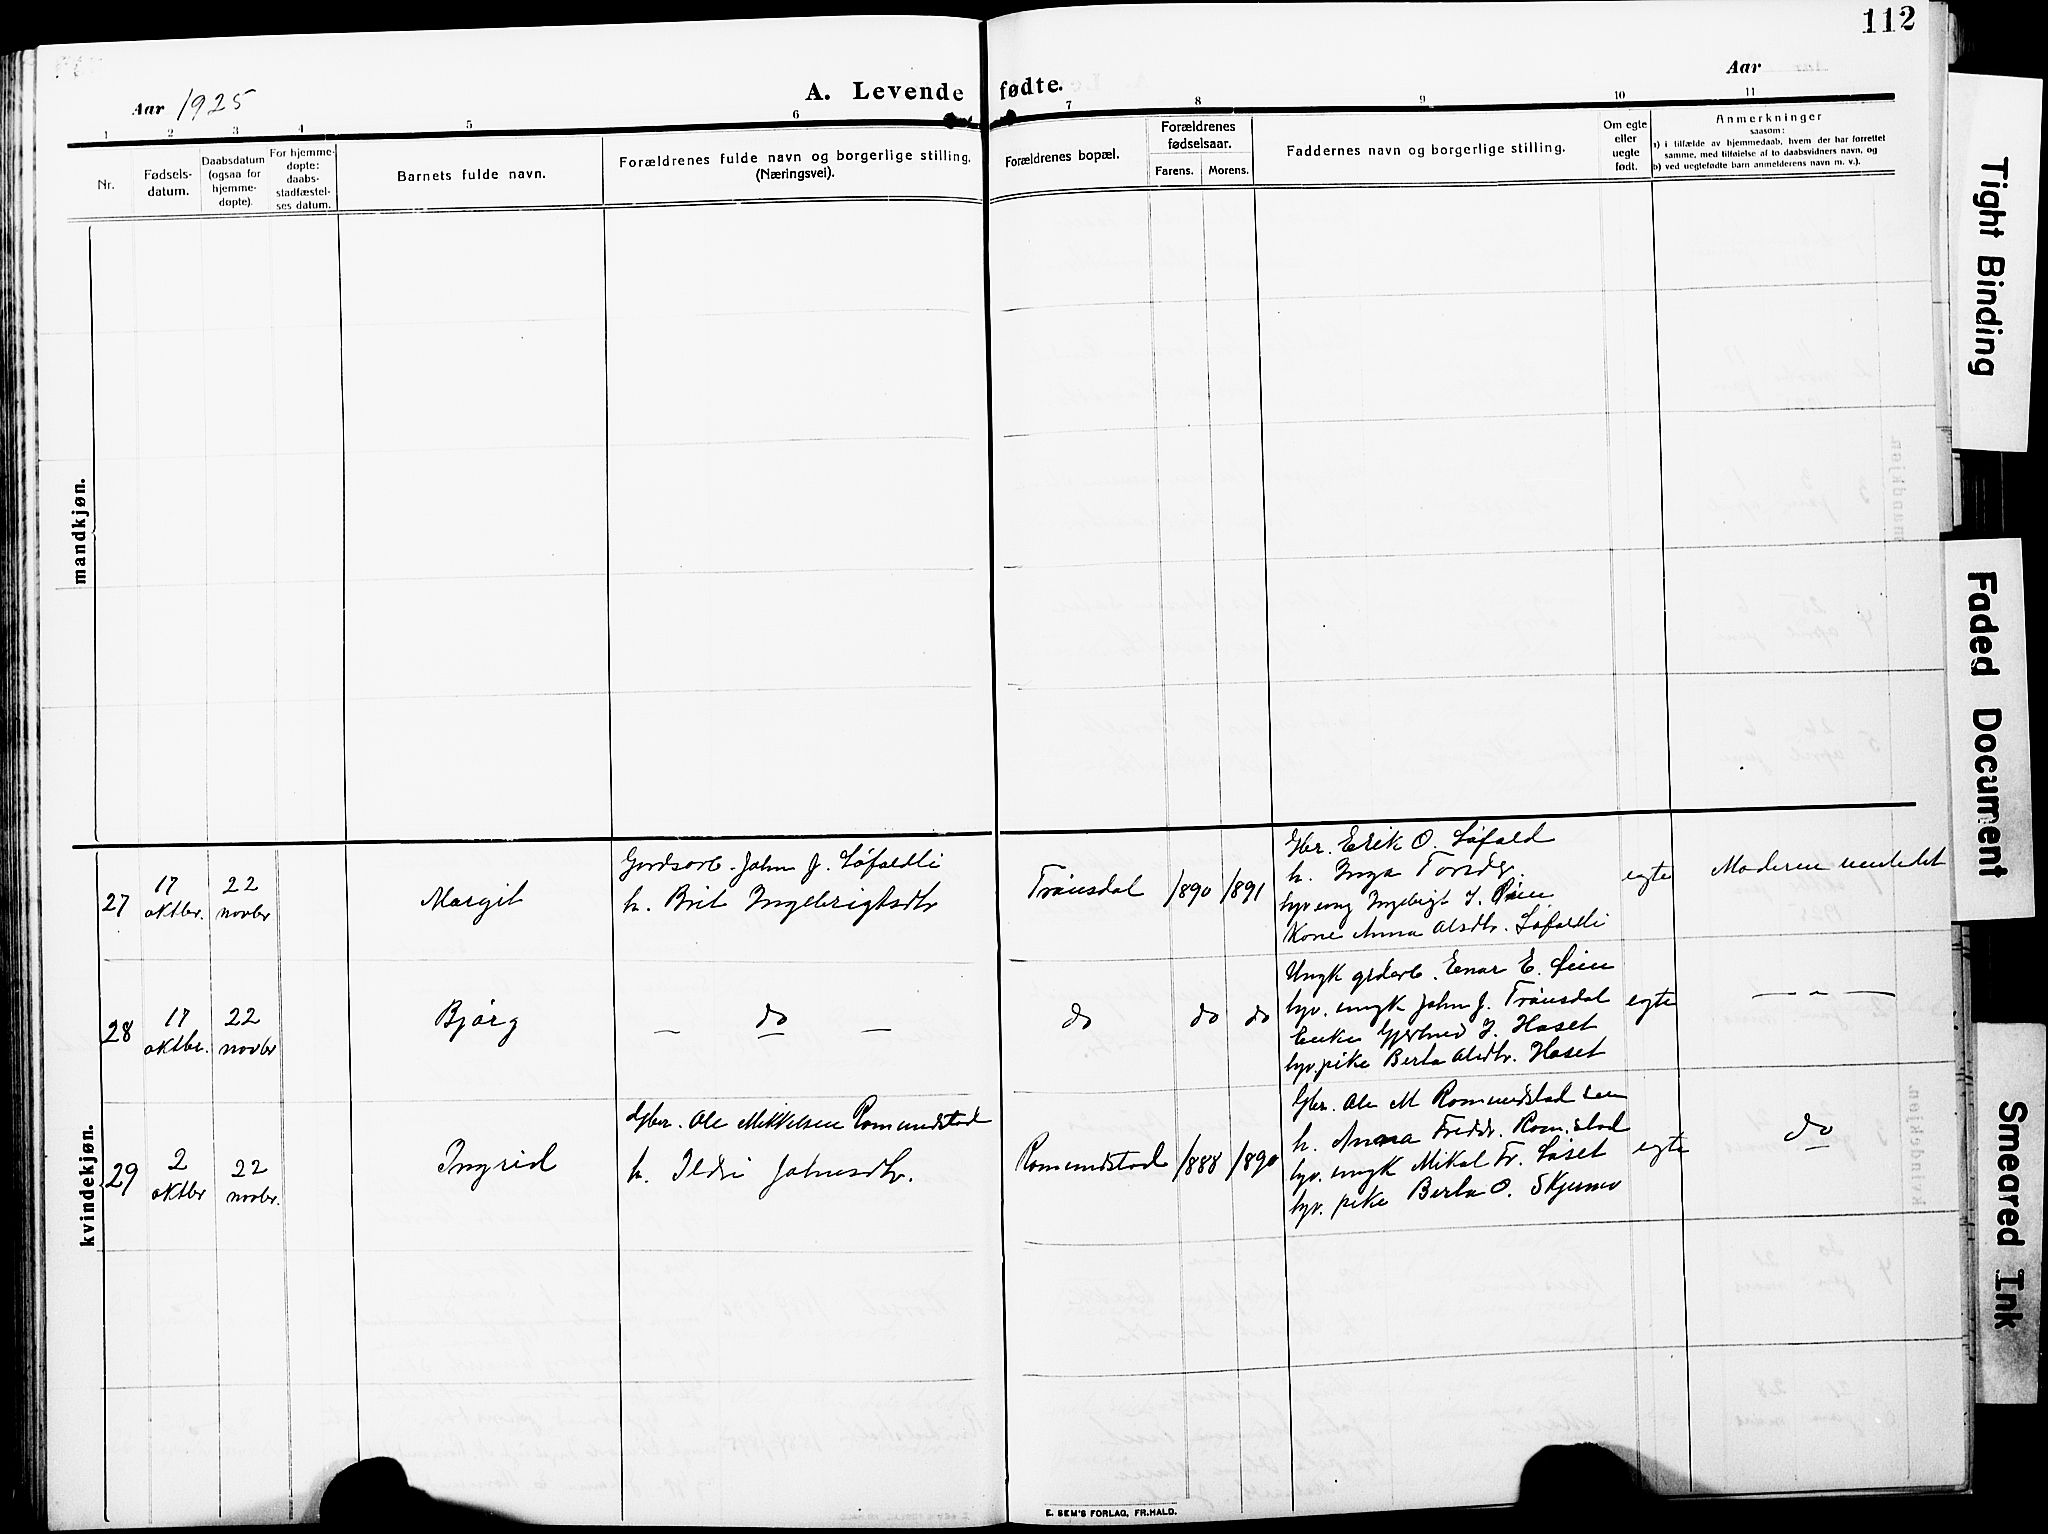 112
Aar 1925
A. Levende fødte.
Aar
1 2 3 4 5 6 7 8 9 10 11
Nr.
Fødsels-
datum.
Daabsdatum
(ogsaa for
hjemme-
døpte).
For hjemme-
døpte:
daabs-
stadfæstel-
ses datum.
Barnets fulde navn.
Forældrenes fulde navn og borgerlige stilling.
(Næringsvei).
Forældrenes bopæl.
Forældrenes
fødselsaar.
Farens. Morens.
Faddernes navn og borgerlige stilling.
Om egte
eller
uegte
født.
Anmerkninger
saasom:
a) i tilfælde av hjemmedaab, hvem der har forrettet
samme, med tilføielse af to daabsvidners navn, og
b) ved uegtefødte barn anmelderens navn m. v.).
mandkjøn.
kvindekjøn.
27
17
oktbr.
22
novbr
Margit
Gardsarb. John J. Løfaldli
h. Brit Ingebrigtsdtr
Trønsdal
1890
1891
Gbr. Erik O. Løfald
h. Inga Torsdr.
hjv. ung Ingebrigt J. Øien
Kone Anna Olsdtr. Løfaldli
egte
Moderen inntedet
28
17
oktbr.
22
novbr
Bjørg
— do —
do
do
do
Ungk grdarb. Einar E. Øien
hjv. ungk John J. Trønsdal
Enke Gjertrud J. Haset
hjv. pike Berta Olsdtr. Haset
egte
— „ —
29
2
oktbr
22
novbr.
Ingrid
Gbr. Ole Mikkelsen Romundstad
h. Ildri Johnsdtr.
Romundstad
1888
1890
Gbr. Ole M Romundstad sen
h. Anna Fredr. Rom.stad
hjv. ungk Mikal Fr. Løset
hjv. pike Berta O. Skjermo
egte
do
E. SEM'S FORLAG, FR.HALD.
Tight Binding
Faded Document
Smeared Ink